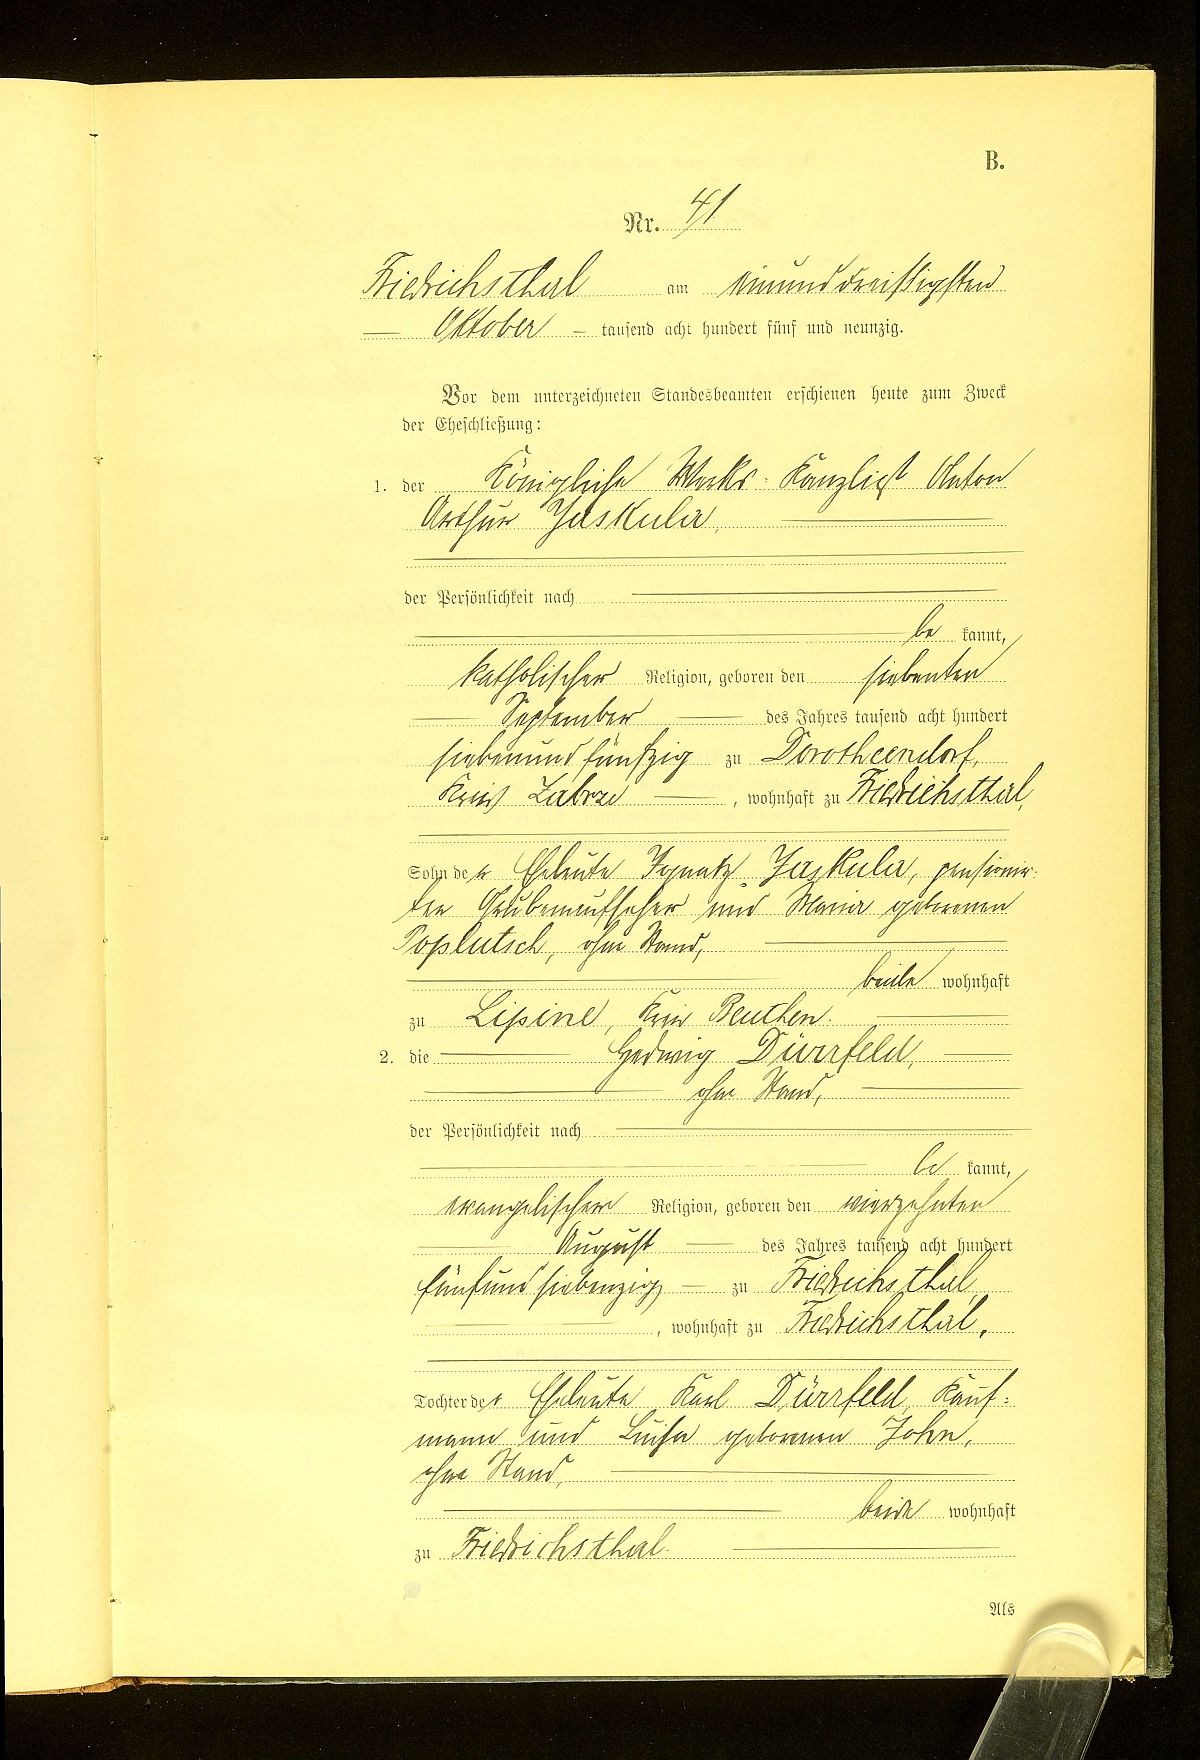 B.
Nr. 41
Friedrichsthal am einunddreißigsten
Oktober tausend acht hundert fünf und neunzig.
Vor dem unterzeichneten Standesbeamten erschienen heute zum Zweck
der Eheschließung:
1. der Königliche Werks-Kanzlist Anton
Arthur Jaskula,
der Persönlichkeit nach
be kannt,
katholischer Religion, geboren den siebenten
September des Jahres tausend acht hundert
siebenundfünfzig zu Dorotheendorf,
Kreis Zabrze, wohnhaft zu Friedrichsthal,
Sohn der Eheleute Ignatz Jaskula, pensionir-
ter Grubenaufseher und Maria geborenen
Poplutsch, ohne Stand,
beide wohnhaft
zu Lipine, Kreis Beuthen.
2. die Hedwig Dürrfeld,
ohne Stand,
der Persönlichkeit nach
be kannt,
evangelischer Religion, geboren den vierzehnten
August des Jahres tausend acht hundert
fünfundsiebenzig zu Friedrichsthal,
, wohnhaft zu Friedrichsthal,
Tochter der Eheleute Karl Dürrfeld, Kauf-
mann und Luise geborenen John,
ohne Stand,
beide wohnhaft
zu Friedrichsthal.
Als